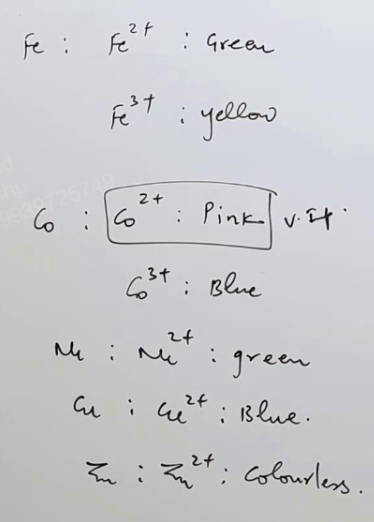 Fe : Fe²⁺ : Green
Fe³⁺ : yellow
Co : Co²⁺ : Pink v. It.
Co³⁺ : Blue
Ni : Ni²⁺ : green
Cu : Cu²⁺ : Blue.
Zn : Zn²⁺ : Colourless.